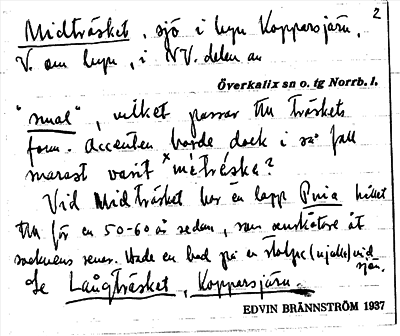 2
Midträsket, sjö i byn Koppersjärv,
V. om byn, i NV. delen av
Överkalix sn o. tg Norrb. l.
"smal", vilket passar till träskets
form. Accenten borde dock i så fall
närmast varit ×métréska?
Vid Midträsket har en lapp Puia hållit
till för en 50-60 år sedan, som
sockens renar. Hade en bod på en stolpe (njalla) vid
sjön.
Se Långträsket, Koppersjärv.
EDVIN BRÄNNSTRÖM 1937